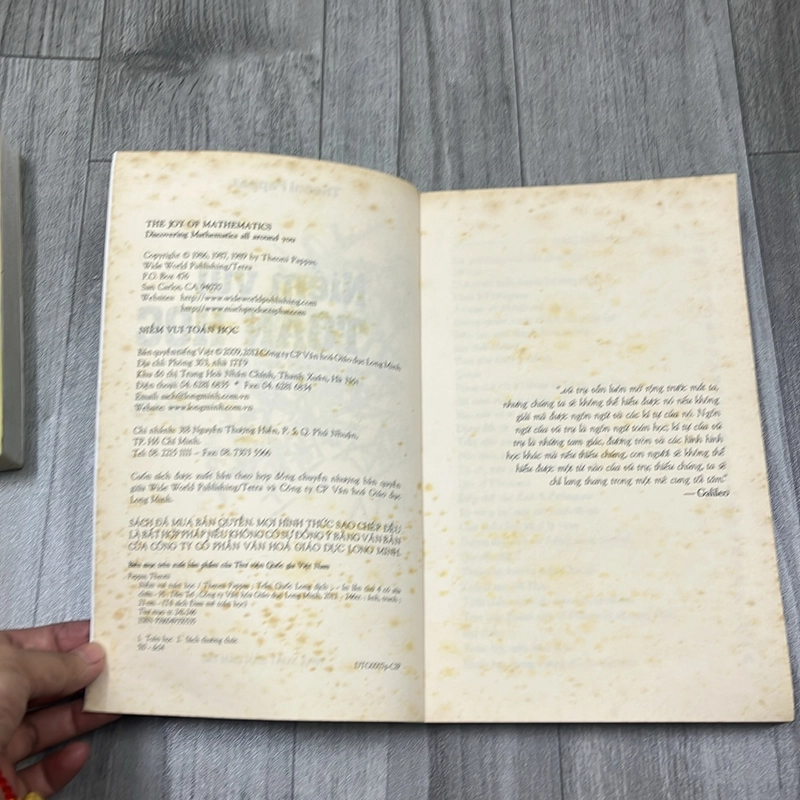 THE JOY OF MATHEMATICS
Discovering Mathematics all around you
Copyright © 1986, 1987, 1989 by Theoni Pappas
Wide World Publishing/Tetra
P.O. Box 476
San Carlos, CA 94070
Websites: http://www.wideworldpublishing.com
NIỀM VUI TOÁN HỌC
Bản quyền tiếng Việt © 2009, 2012 Công ty CP Văn hoá Giáo dục Long Minh
Địa chỉ: Phòng 303, nhà 17T9
Khu đô thị Trung Hoà Nhân Chính, Thanh Xuân, Hà Nội
Điện thoại: 04. 6281 6635 * Fax: 04. 6281 6634
Website: www.longminh.com.vn
Chi nhánh: 388 Nguyễn Thượng Hiền, P. 5, Q. Phú Nhuận,
TP. Hồ Chí Minh.
Tel: 08. 2215 1111 – Fax: 08. 7303 5566
Cuốn sách được xuất bản theo hợp đồng chuyển nhượng bản quyền
giữa Wide World Publishing/Tetra và Công ty CP Văn hoá Giáo dục
Long Minh.
SÁCH ĐÃ MUA BẢN QUYỀN. MỌI HÌNH THỨC SAO CHÉP ĐỀU
LÀ BẤT HỢP PHÁP NẾU KHÔNG CÓ SỰ ĐỒNG Ý BẰNG VĂN BẢN
CỦA CÔNG TY CỔ PHẦN VĂN HOÁ GIÁO DỤC LONG MINH.
Biên mục trên xuất bản phẩm của Thư viện Quốc gia Việt Nam
Pappas, Theoni
Niềm vui toán học / Theoni Pappas ; Trần Quốc Long dịch
1. Toán học 2. Sách thường thức
"...vũ trụ vẫn luôn mở rộng trước mắt ta,
nhưng chúng ta sẽ không thể hiểu được nó nếu không
giải mã được ngôn ngữ và các kí tự của nó. Ngôn
ngữ của vũ trụ là ngôn ngữ toán học; kí tự của vũ
trụ là những tam giác, đường tròn và các hình hình
học khác mà nếu thiếu chúng, con người sẽ không thể
hiểu được một từ nào của vũ trụ; thiếu chúng, ta sẽ
chỉ lang thang trong một mê cung tối tăm."
— Galileo